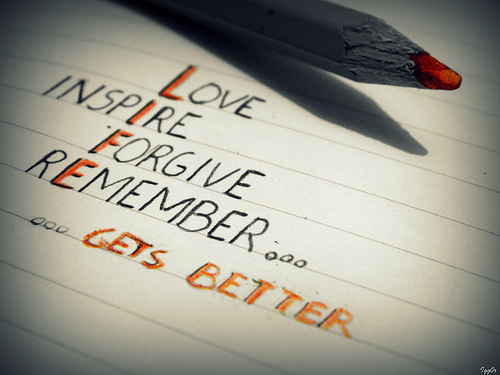 LOVE
INSPIRE
FORGIVE
REMEMBER...
... GETS BETTER